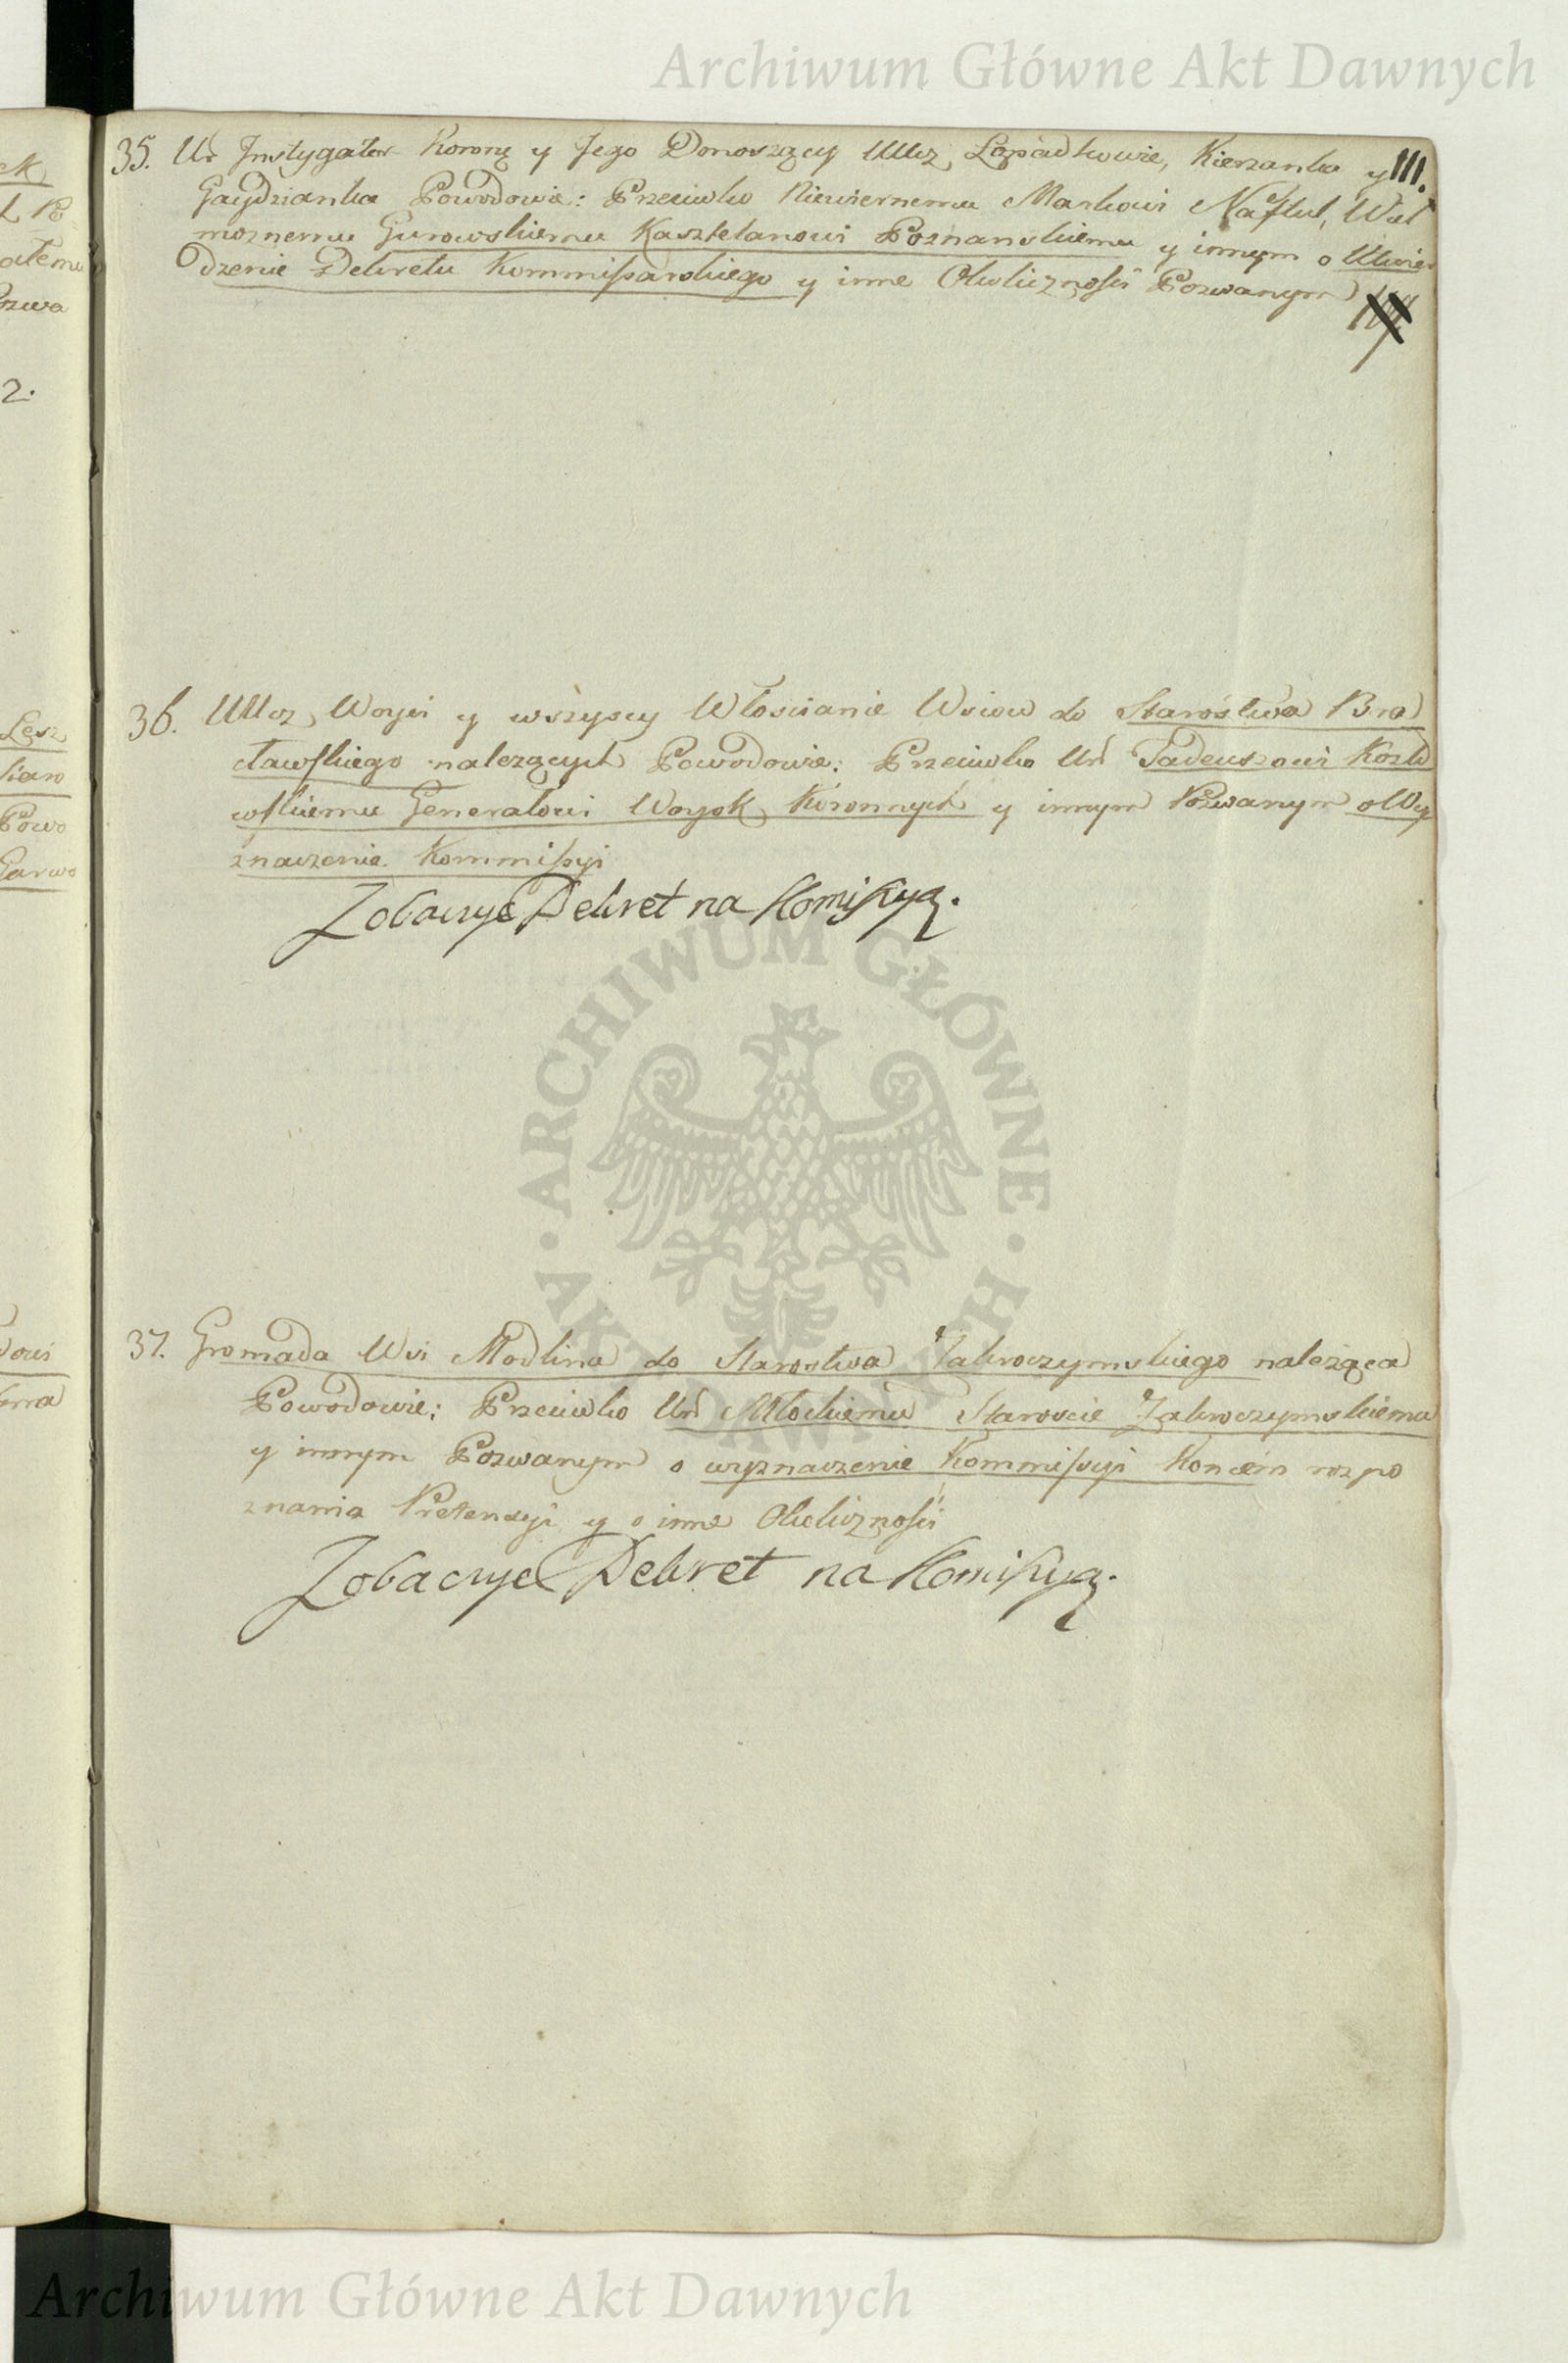 Archiwum Główne Akt Dawnych
35. Ur Instygator Korony y Jego Donoszący UUcz, Łapadkowie, Kierzanka y 111.
Gaydzianka Powodowie: Przeciwko Niewiernemu Markowi Naftul, Wiel
możnemu Gurowskiemu Kasztelanowi Poznanskiemu y innym o Utwier
dzenie Dekretu Kommissarskiego y inne Okolicznosci Pozwanym
36. UUcz, Woyci y wszyscy Włoscianie Wsiow do Starostwa Bra
cławskiego nalezących Powodowie: Przeciwko Ur Tadeuszowi Kozło
wskiemu Generałowi Woysk Koronnych y innym Pozwanym o Wy
znaczenie Kommissyi
Zobaczyć Dekret na Komissyą.
37. Gromada Wsi Modlina do Starostwa Zakroczymskiego należąca
Powodowie: Przeciwko Ur Młockiemu Staroscie Zakroczymskiemu
y innym Pozwanym o wyznaczenie Kommissyi Koncem rozpo
znania Pretensyi y o inne Okolicznosci
Zobaczyć Dekret na Komissyą.
ARCHIWUM GŁÓWNE AKT DAWNYCH
Archiwum Główne Akt Dawnych